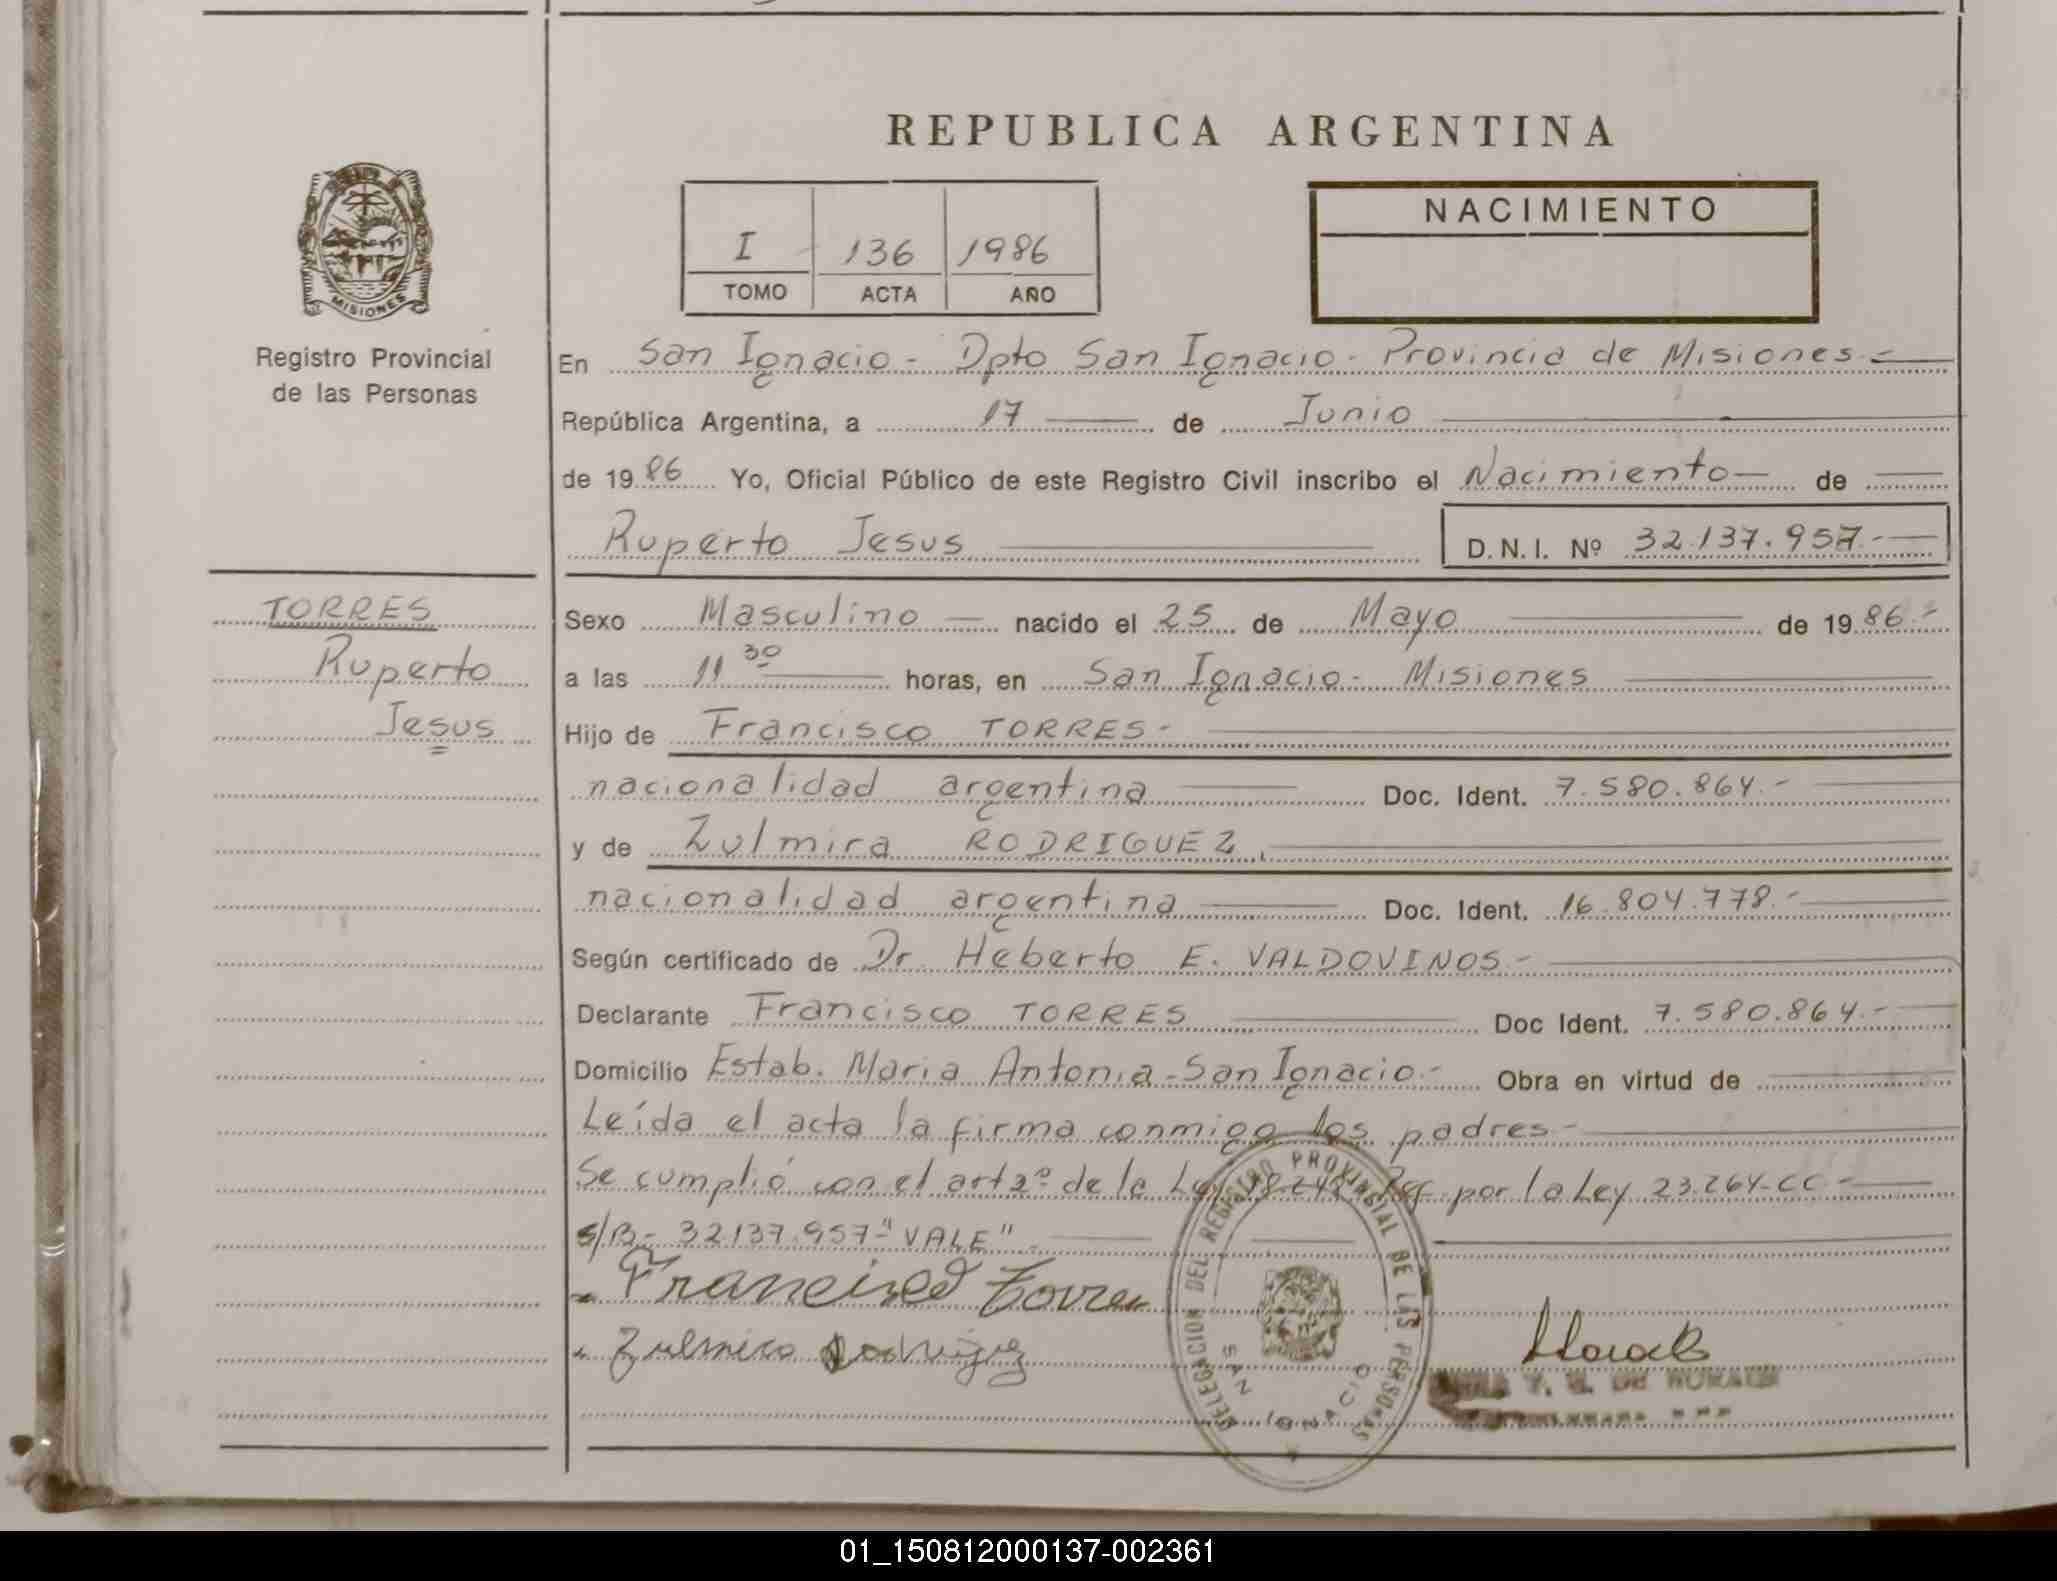 REPUBLICA ARGENTINA
MISIONES
Registro Provincial
de las Personas
I 136 1986
TOMO ACTA AÑO
NACIMIENTO
En San Ignacio - Dpto San Ignacio - Provincia de Misiones -
República Argentina, a 17 de Junio
de 19 86 Yo, Oficial Público de este Registro Civil inscribo el Nacimiento de
Ruperto Jesus D.N.I. Nº 32.137.957.-
TORRES
Ruperto
Jesus
Sexo Masculino nacido el 25 de Mayo de 19 86.-
a las 11 30 horas, en San Ignacio - Misiones
Hijo de Francisco TORRES -
nacionalidad argentina Doc. Ident. 7.580.864.-
y de Zulmira RODRIGUEZ.
nacionalidad argentina Doc. Ident. 16.804.778.-
Según certificado de Dr. Heberto E. VALDOVINOS -
Declarante Francisco TORRES Doc Ident. 7.580.864.-
Domicilio Estab. Maria Antonia - San Ignacio - Obra en virtud de
Leída el acta la firma conmigo los padres -
Se cumplió con el art 2º de la Ley 18.248 por la Ley 23.264-CC -
S/B - 32137.957 - "VALE"
Francisco Torres
Zulmira Rodriguez
DELEGACION DEL REGISTRO PROVINCIAL DE LAS PERSONAS
SAN IGNACIO
01_150812000137-002361